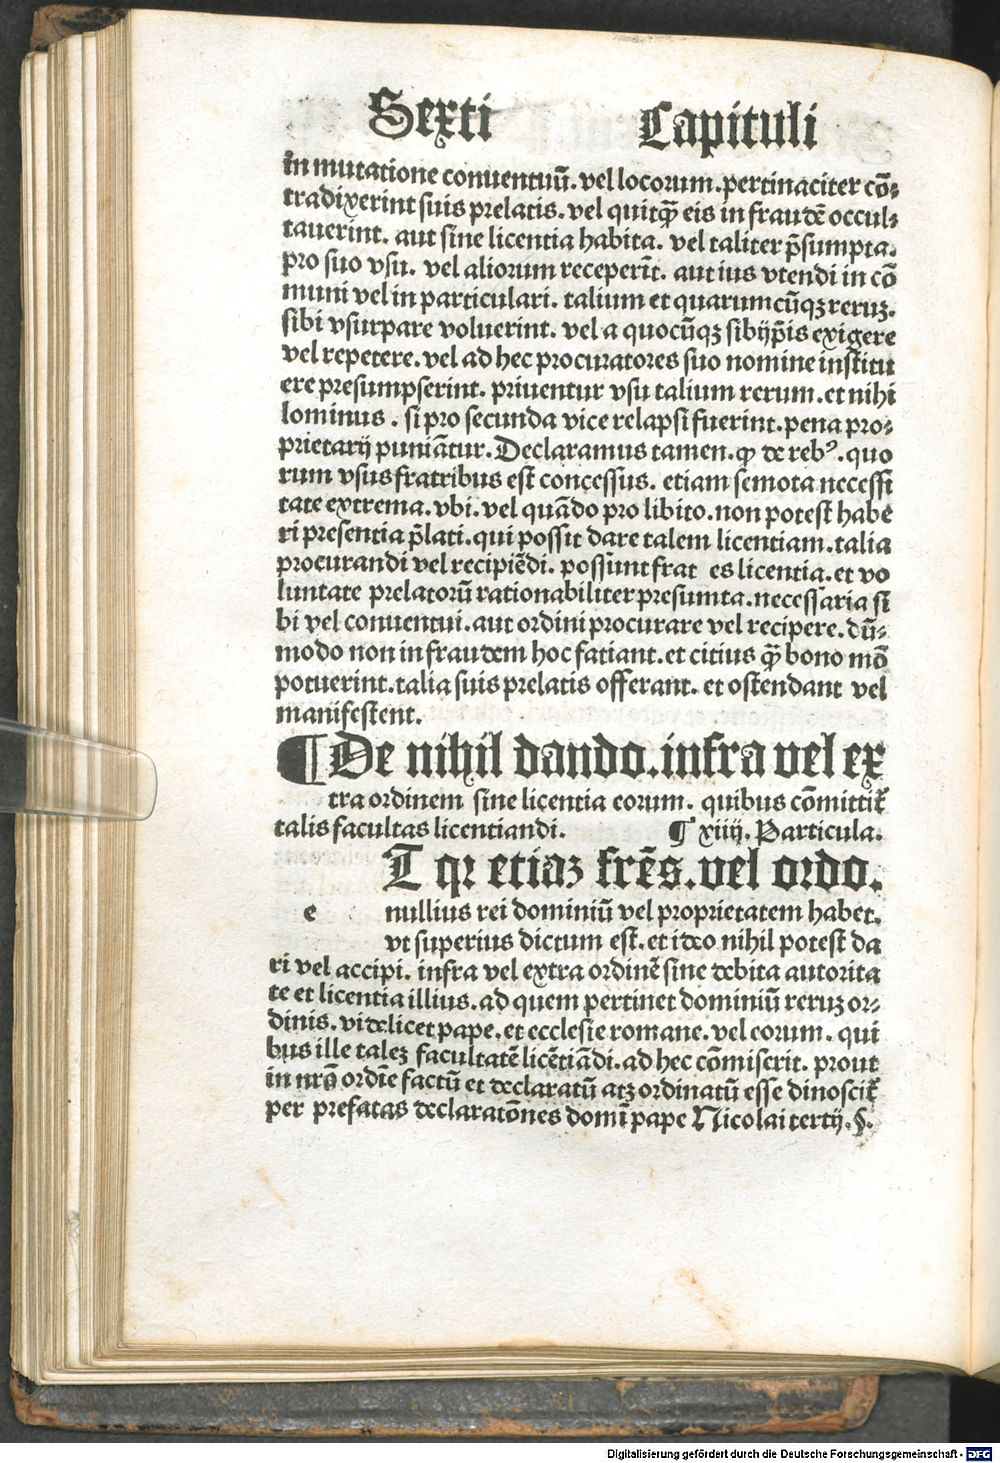 Sexti Capituli
in mutatione conuentuũ. vel locorum. pertinaciter cõ⸗
tradixerint suis prelatis. vel quitqȝ̃ eis in fraudẽ occul⸗
tauerint. aut sine licentia habita. vel taliter p̃sumpta.
pro suo vsu. vel aliorum receperĩt. aut ius vtendi in cõ
muni vel in particulari. talium et quarumcũqȝ reruȝ.
sibi vsurpare voluerint. vel a quocũqȝ sibijp̃is exigere
vel repetere. vel ad hec procuratores suo nomine institu
ere presumpserint. priuentur vsu talium rerum. et nihi
lominus. si pro secunda vice relapsi fuerint. pena pro⸗
prietarij puniãtur. Declaramus tamen. ꝙ de rebꝰ. quo
rum vsus fratribus est concessus. etiam semota necessi
tate extrema. vbi. vel quãdo pro libito. non potest habe
ri presentia p̃lati. qui possit dare talem licentiam. talia
procurandi vel recipiẽdi. possunt frat es licentia. et vo
luntate prelatorũ rationabiliter presumta. necessaria si
bi vel conuentui. aut ordini procurare vel recipere. dũ⸗
modo non in fraudem hoc fatiant. et citius qȝ̃ bono mõ
potuerint. talia suis prelatis offerant. et ostendant vel
manifestent.
¶ De nihil dando. infra vel ex
tra ordinem sine licentia eorum. quibus cõmittit᷑
talis facultas licentiandi. ¶ xiiij. Particula.
T qꝛ etiaȝ frẽs. vel ordo.
e nullius rei dominiũ vel proprietatem habet.
vt superius dictum est. et ideo nihil potest da
ri vel accipi. infra vel extra ordinẽ sine debita autorita
te et licentia illius. ad quem pertinet dominiũ reruȝ or⸗
dinis. videlicet pape. et ecclesie romane. vel eorum. qui
bus ille taleȝ facultatẽ licẽtiãdi. ad hec cõmiserit. prout
in nrõ ordĩe factũ et declaratũ atqȝ ordinatũ esse dinoscit᷑
per prefatas declaratõnes domĩ pape Nicolai tertij. §.
Digitalisierung gefördert durch die Deutsche Forschungsgemeinschaft - DFG